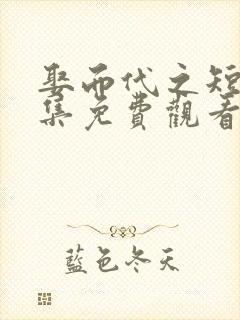 娶而代之短
集免費觀看
藍色冬天